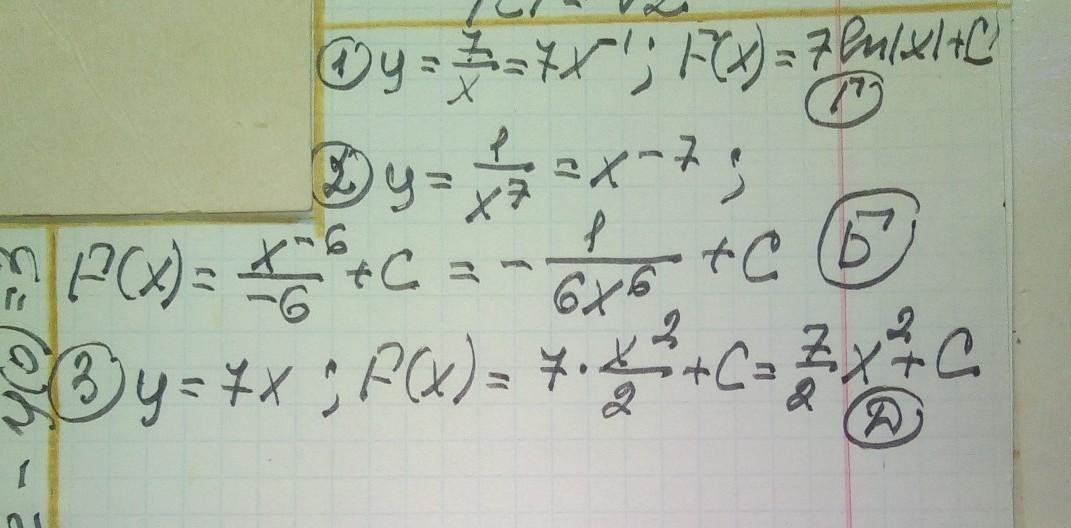 ① y = 7/x = 7x⁻¹; F(x) = 7ln|x|+C
Г
② y = 1/x⁷ = x⁻⁷;
F(x) = x⁻⁶/-6 + C = -1/6x⁶ + C Б
③ y = 7x; F(x) = 7·x²/2 + C = 7/2 x² + C
Д
y(0) = 3